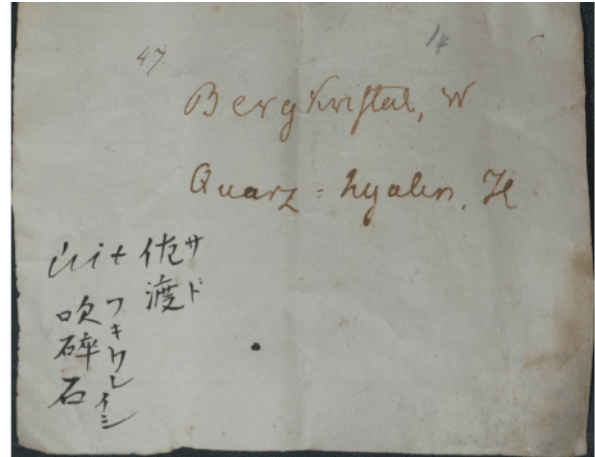 47
14
Bergkristal, W
Quarz = hyalin, H
佐渡
サド
吹砕石
フキワレイシ